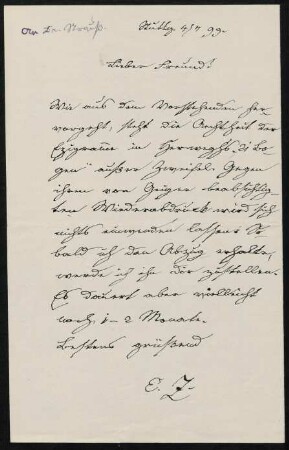 An Dr. Strauß.
Stuttg. 4/7 99.
Lieber Freund!
Wie aus dem Vorstehenden her-
vorgeht, steht die Aechtheit der
Epigramme in Herwegh's „21 Bo-
gen“ außer Zweifel. Gegen
ihren von Geiger beabsichtig-
ten Wiederabdruck wird sich
nichts einwenden lassen. So
bald ich den Abzug erhalte,
werde ich ihn dir zustellen.
Es dauert aber vielleicht
noch 1-2 Monate.
Bestens grüßend
E. Z.